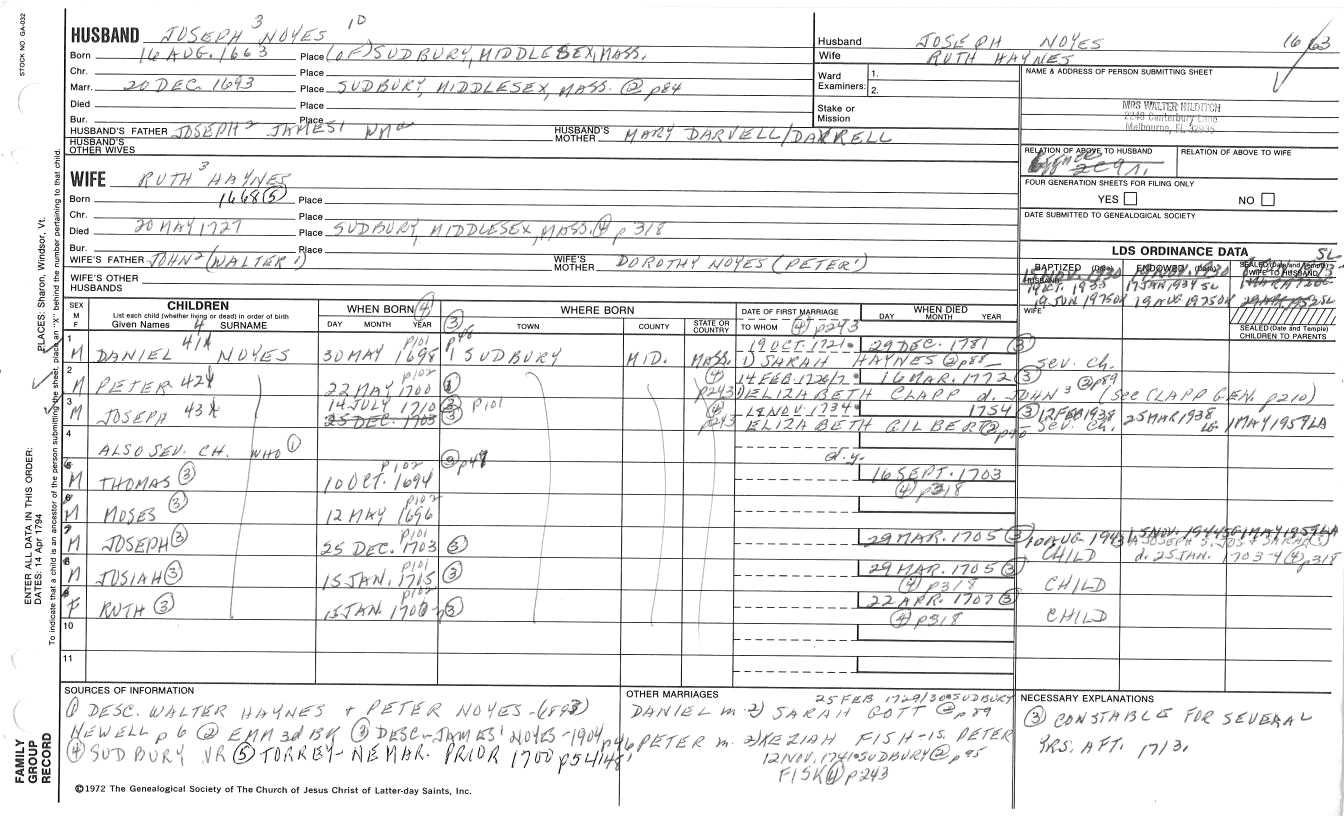 STOCK NO GA-032
HUSBAND JOSEPH 3 NOYES 10
Born 16 AUG. 1663 Place (OF) SUDBURY, MIDDLESEX, MASS.
Chr. Place
Marr. 20 DEC. 1693 Place SUDBURY, MIDDLESEX, MASS. ② p84
Died Place
Bur. Place
HUSBAND'S FATHER JOSEPH 2 JAMES 1 HUSBAND'S MOTHER MARY DARVELL/DARRELL
HUSBAND'S OTHER WIVES
WIFE RUTH 3 HAYNES
Born 1668 ⑤ Place
Chr. Place
Died 20 MAY 1727 Place SUDBURY, MIDDLESEX, MASS. ④ p 318
Bur. Place
WIFE'S FATHER JOHN 2 (WALTER 1) WIFE'S MOTHER DOROTHY NOYES (PETER 1)
WIFE'S OTHER HUSBANDS
Husband JOSEPH NOYES 1663
Wife RUTH HAYNES
Ward Examiners: 1.
2.
Stake or Mission
NAME & ADDRESS OF PERSON SUBMITTING SHEET
MRS WALTER HILDITCH
2249 Canterbury Lane
Melbourne, FL 32935
RELATION OF ABOVE TO HUSBAND RELATION OF ABOVE TO WIFE
FOUR GENERATION SHEETS FOR FILING ONLY
YES NO
DATE SUBMITTED TO GENEALOGICAL SOCIETY
LDS ORDINANCE DATA SL
BAPTIZED (Date) ENDOWED (Date) SEALED (Date and Temple) WIFE TO HUSBAND
HUSBAND
19 OCT. 1933 17 JAN. 1934 SL
19 JUN 1975 OK 19 AUG 1975 OK
WIFE
SEALED (Date and Temple) CHILDREN TO PARENTS
SEX M F CHILDREN List each child (whether living or dead) in order of birth Given Names 4 SURNAME
WHEN BORN ④ DAY MONTH YEAR
WHERE BORN TOWN COUNTY STATE OR COUNTRY
DATE OF FIRST MARRIAGE TO WHOM ④ p243
WHEN DIED DAY MONTH YEAR
1 M DANIEL 41 NOYES 30 MAY 1698 SUDBURY MID. MASS. 19 OCT. 1721 29 DEC. 1781 ③
1) SARAH HAYNES ② p88 sev. ch.
2 M PETER 42 p102 22 MAY 1700 ④ p243 14 FEB 1726/7 16 MAR. 1772 ③ ② p89
1) ELIZABETH CLAPP d. JOHN 3 (SEE CLAPP GEN. p210)
3 M JOSEPH 43 14 JULY 1710 p101 25 DEC. 1703 ③ ④ p243 19 NOV. 1734 1754 ③ 12 FEB 1938 25 MAR 1938 1 MAY 1959 LA
ELIZABETH GILBERT sev. ch.
4 ALSO SEV. CH. WHO ① d.y.
5 M THOMAS ③ p102 10 OCT. 1694 16 SEPT. 1703
④ p318
6 M MOSES ③ p102 12 MAY 1696
7 M JOSEPH ③ p101 25 DEC. 1703 ③ 29 MAR. 1705 ③ 10 AUG. 1943 1 MAY 1959 LA
CHILD d. 25 JAN. 1703-4 ④ p318
8 M JOSIAH ③ p101 15 JAN. 1715 ③ 29 MAR. 1705 ③
④ p318 CHILD
9 F RUTH ③ p102 15 JAN. ③ 22 APR. 1707 ③
④ p318 CHILD
10
11
SOURCES OF INFORMATION
① DESC. WALTER HAYNES + PETER NOYES-(1893)
NEWELL p 6 ② EMM 3d BK ③ DESC-JAMES' NOYES-1904 p46
④ SUDBURY VR ⑤ TORREY-NE MAR. PRIOR 1700
OTHER MARRIAGES 25 FEB 1729/30 SUDBURY
DANIEL m. 2) SARAH GOTT ② p89
PETER m. 2) KEZIAH FISH-IS. PETER
12 NOV. 1741 SUDBURY ② p95
FISK ④ p243
NECESSARY EXPLANATIONS
③ CONSTABLE FOR SEVERAL
YRS. AFT. 1713.
©1972 The Genealogical Society of The Church of Jesus Christ of Latter-day Saints, Inc.
FAMILY GROUP RECORD
ENTER ALL DATA IN THIS ORDER:
DATES: 14 Apr 1794
PLACES: Sharon, Windsor, Vt.
To indicate that a child is an ancestor of the person submitting the sheet, place an "X" behind the number pertaining to that child.